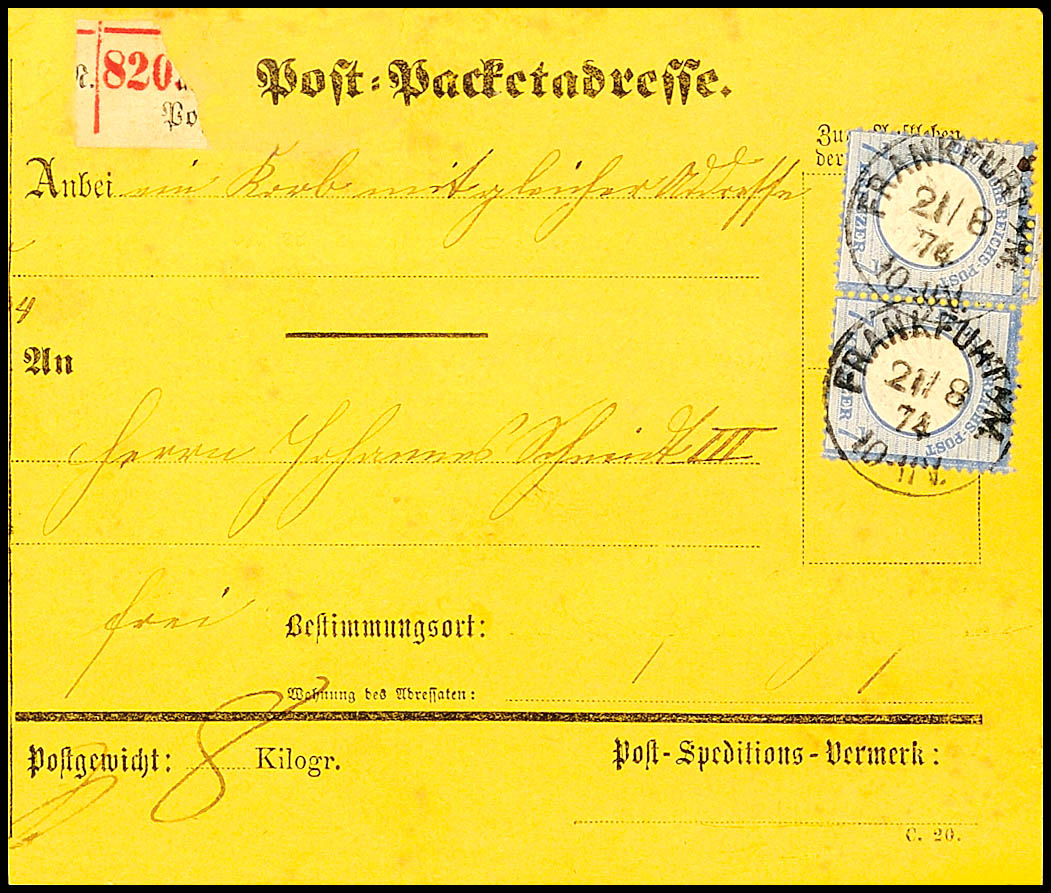 820
Po
Post-Packetadresse.
Zum Aufkleben
der
Anbei ein Korb mit gleicher Adresse
An
Herrn Johannes Schmidt III
frei
Bestimmungsort:
Wohnung des Adressaten:
Postgewicht: 8 Kilogr.
Post-Speditions-Vermerk:
C. 20.
FRANKFURT A/M.
21/8
74
10-11N.
REICHS-POST
FRANKFURT A/M.
21/8
74
10-11N.
REICHS-POST